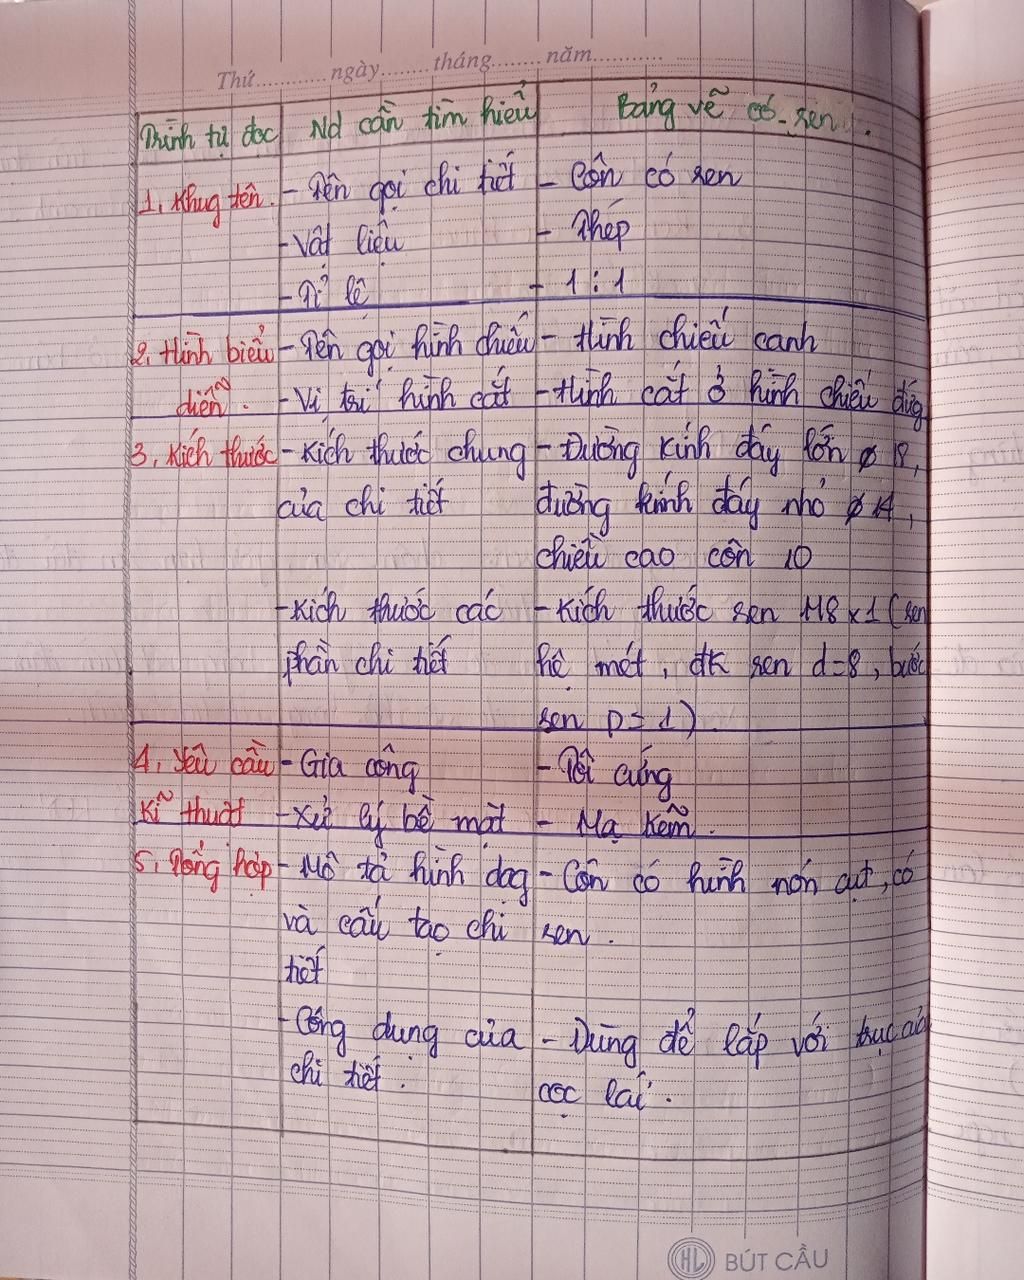 Thứ.......... ngày....... tháng........ năm...........
Trình tự đọc Nd cần tìm hiểu Bảng vẽ có sen.
1, Khug tên. - Tên gọi chi tiết - Côn có sen
- Vật liệu - Thép
- Tỉ lệ - 1 : 1
2, Hình biểu - Tên gọi hình chiếu - Hình chiếu canh
diễn. - Vi trí hình cắt - Hình cắt ở hình chiếu đứg
3, Kích thước - Kích thước chung - Đường kính đáy lớn ø 18,
của chi tiết đường kính đáy nhỏ ø 14,
chiều cao côn 10
- Kích thước các - Kích thước sen M8 x 1 (sen
phần chi tiết hệ mét, đk sen d=8, bước
sen p = 1)
4, Yêu cầu - Gia công - Tôi cứng
Kĩ thuật - Xử lý bề mặt - Mạ kẽm.
5, Tổng hợp - Mô tả hình dag - Côn có hình nón cụt, có
và cấu tạo chi sen.
tiết
- Công dụng của - Dùng để lắp với trục của
chi tiết. cọc lái.
HL BÚT CẦU